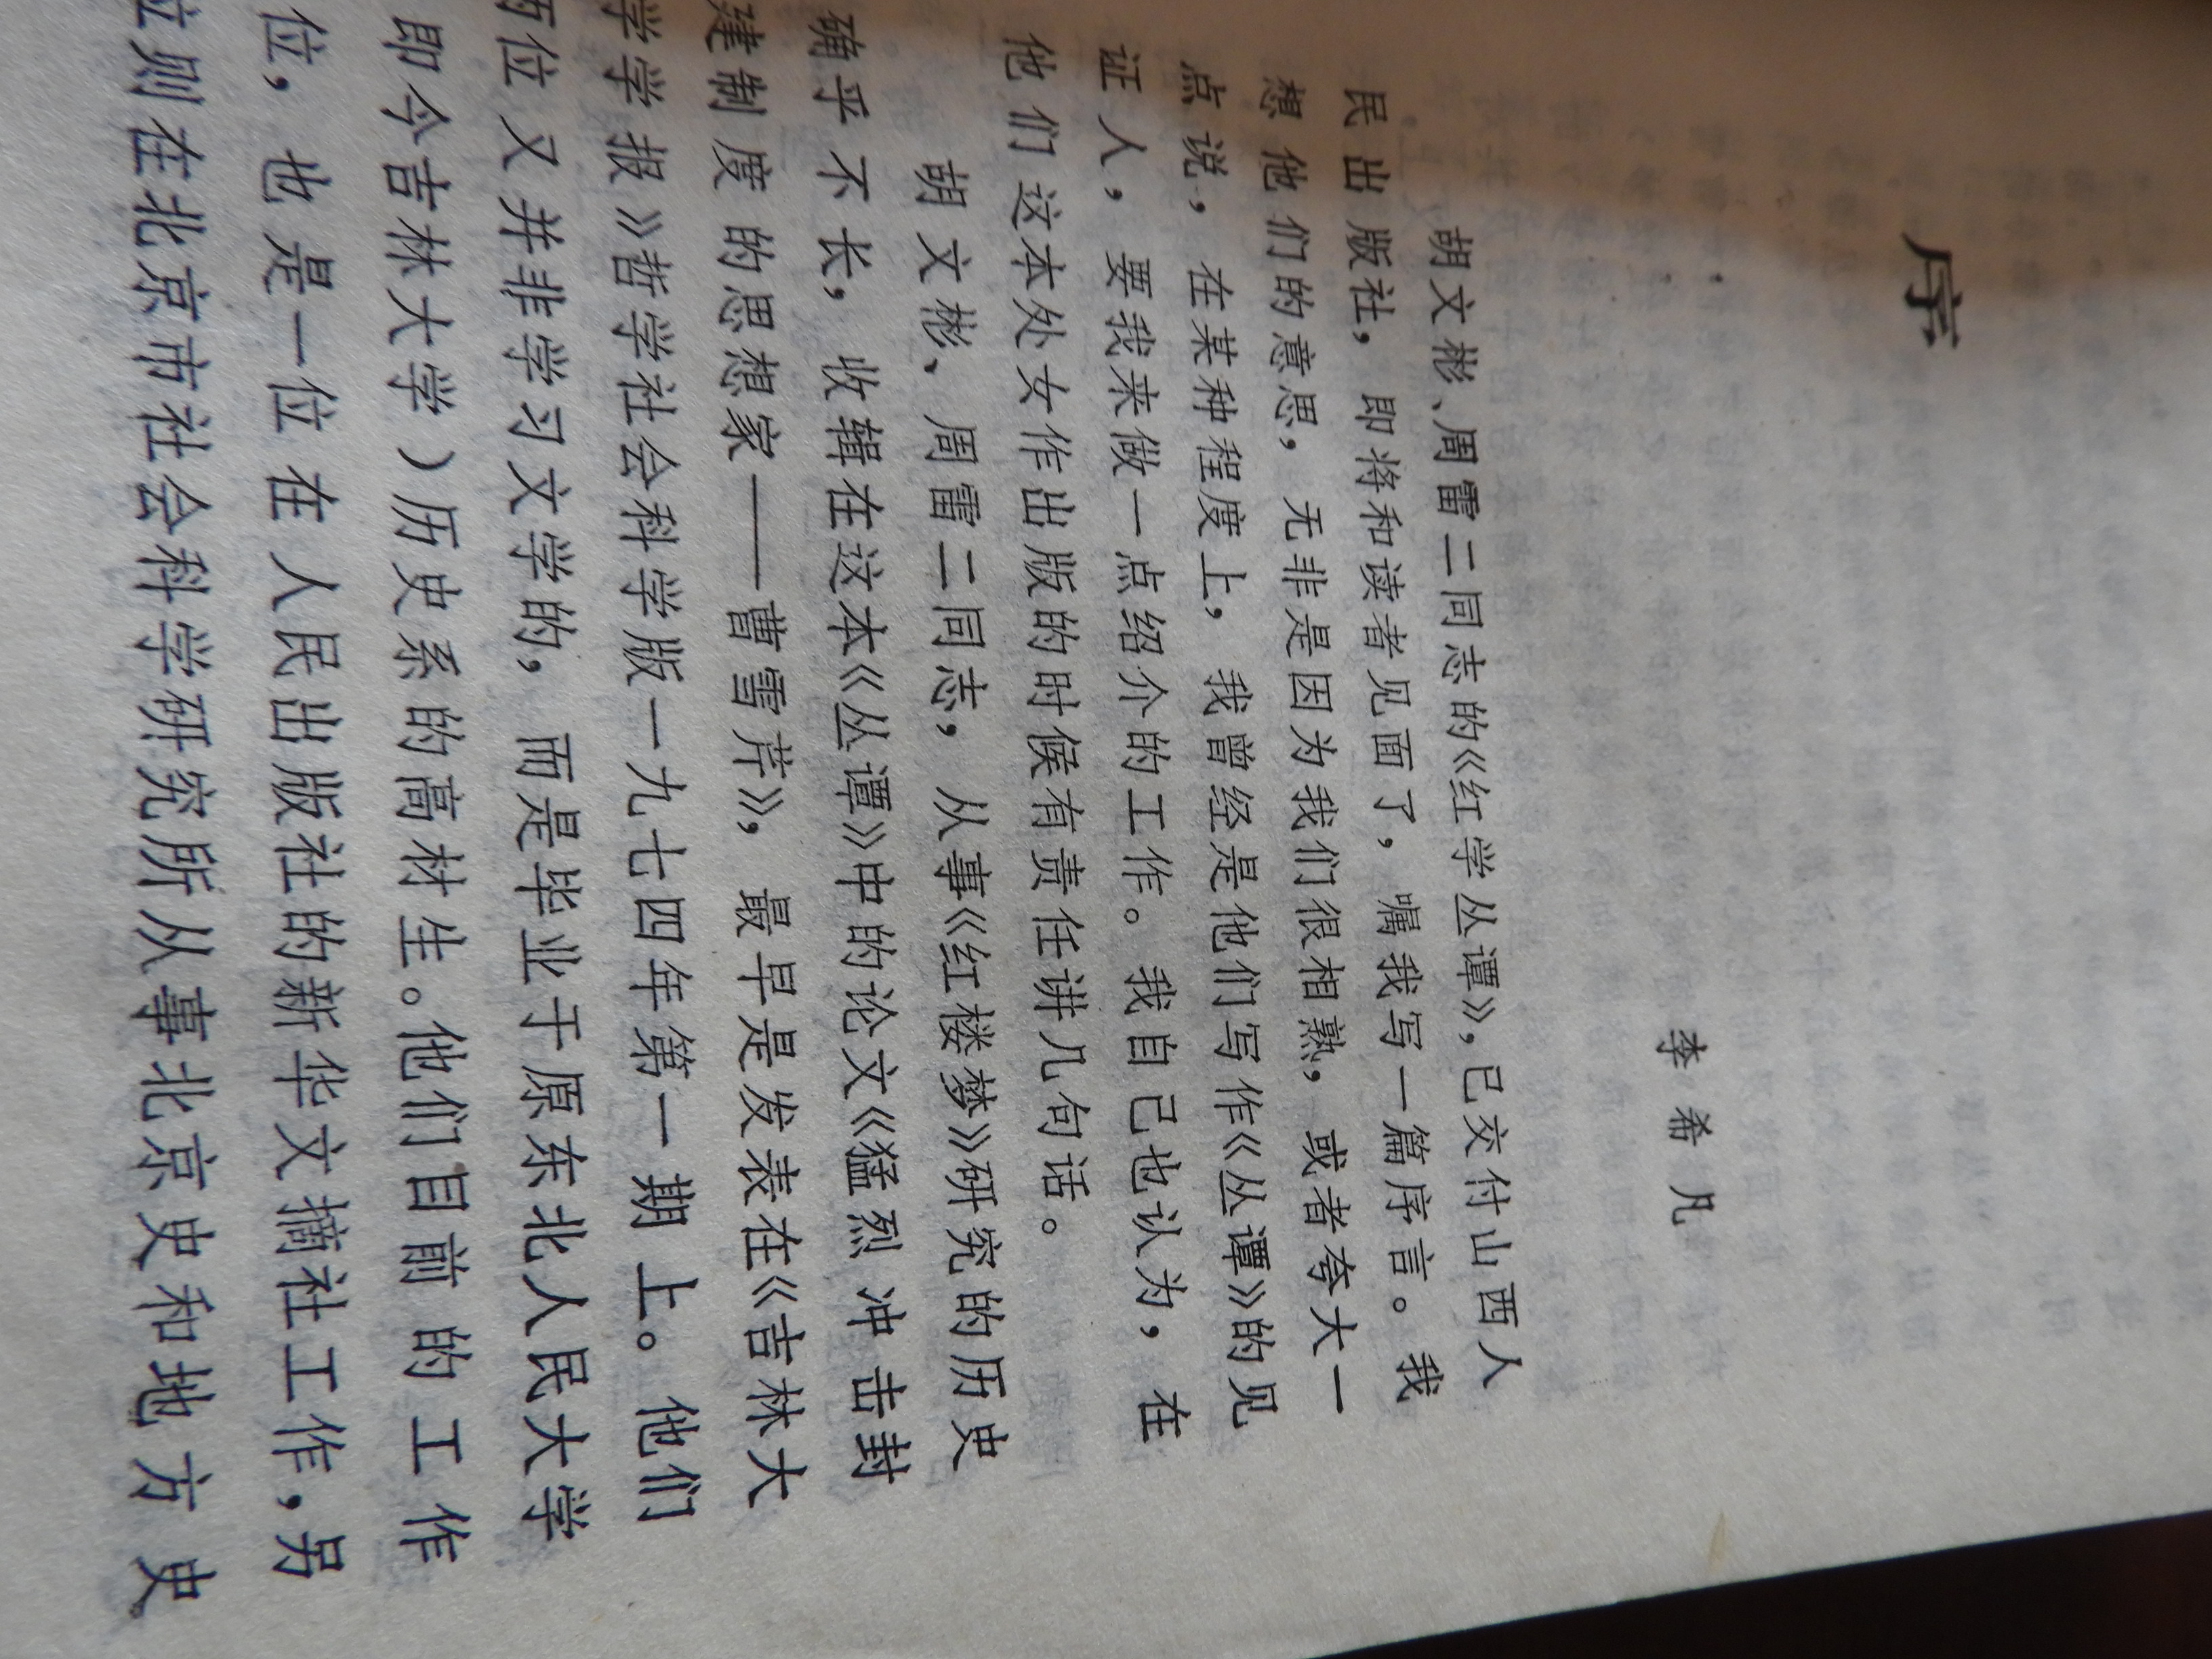 序
李希凡
胡文彬、周雷二同志的《红学丛谭》，已交付山西人
民出版社，即将和读者见面了，嘱我写一篇序言。我
想他们的意思，无非是因为我们很相熟，或者夸大一
点说，在某种程度上，我曾经是他们写作《丛谭》的见
证人，要我来做一点绍介的工作。我自己也认为，在
他们这本处女作出版的时候有责任讲几句话。
胡文彬、周雷二同志，从事《红楼梦》研究的历史
确乎不长，收辑在这本《丛谭》中的论文《猛烈冲击封
建制度的思想家——曹雪芹》，最早是发表在《吉林大
学学报》哲学社会科学版一九七四年第一期上。他们
两位又并非学习文学的，而是毕业于原东北人民大学
即今吉林大学）历史系的高材生。他们目前的工作
位，也是一位在人民出版社的新华文摘社工作，另
位则在北京市社会科学研究所从事北京史和地方史